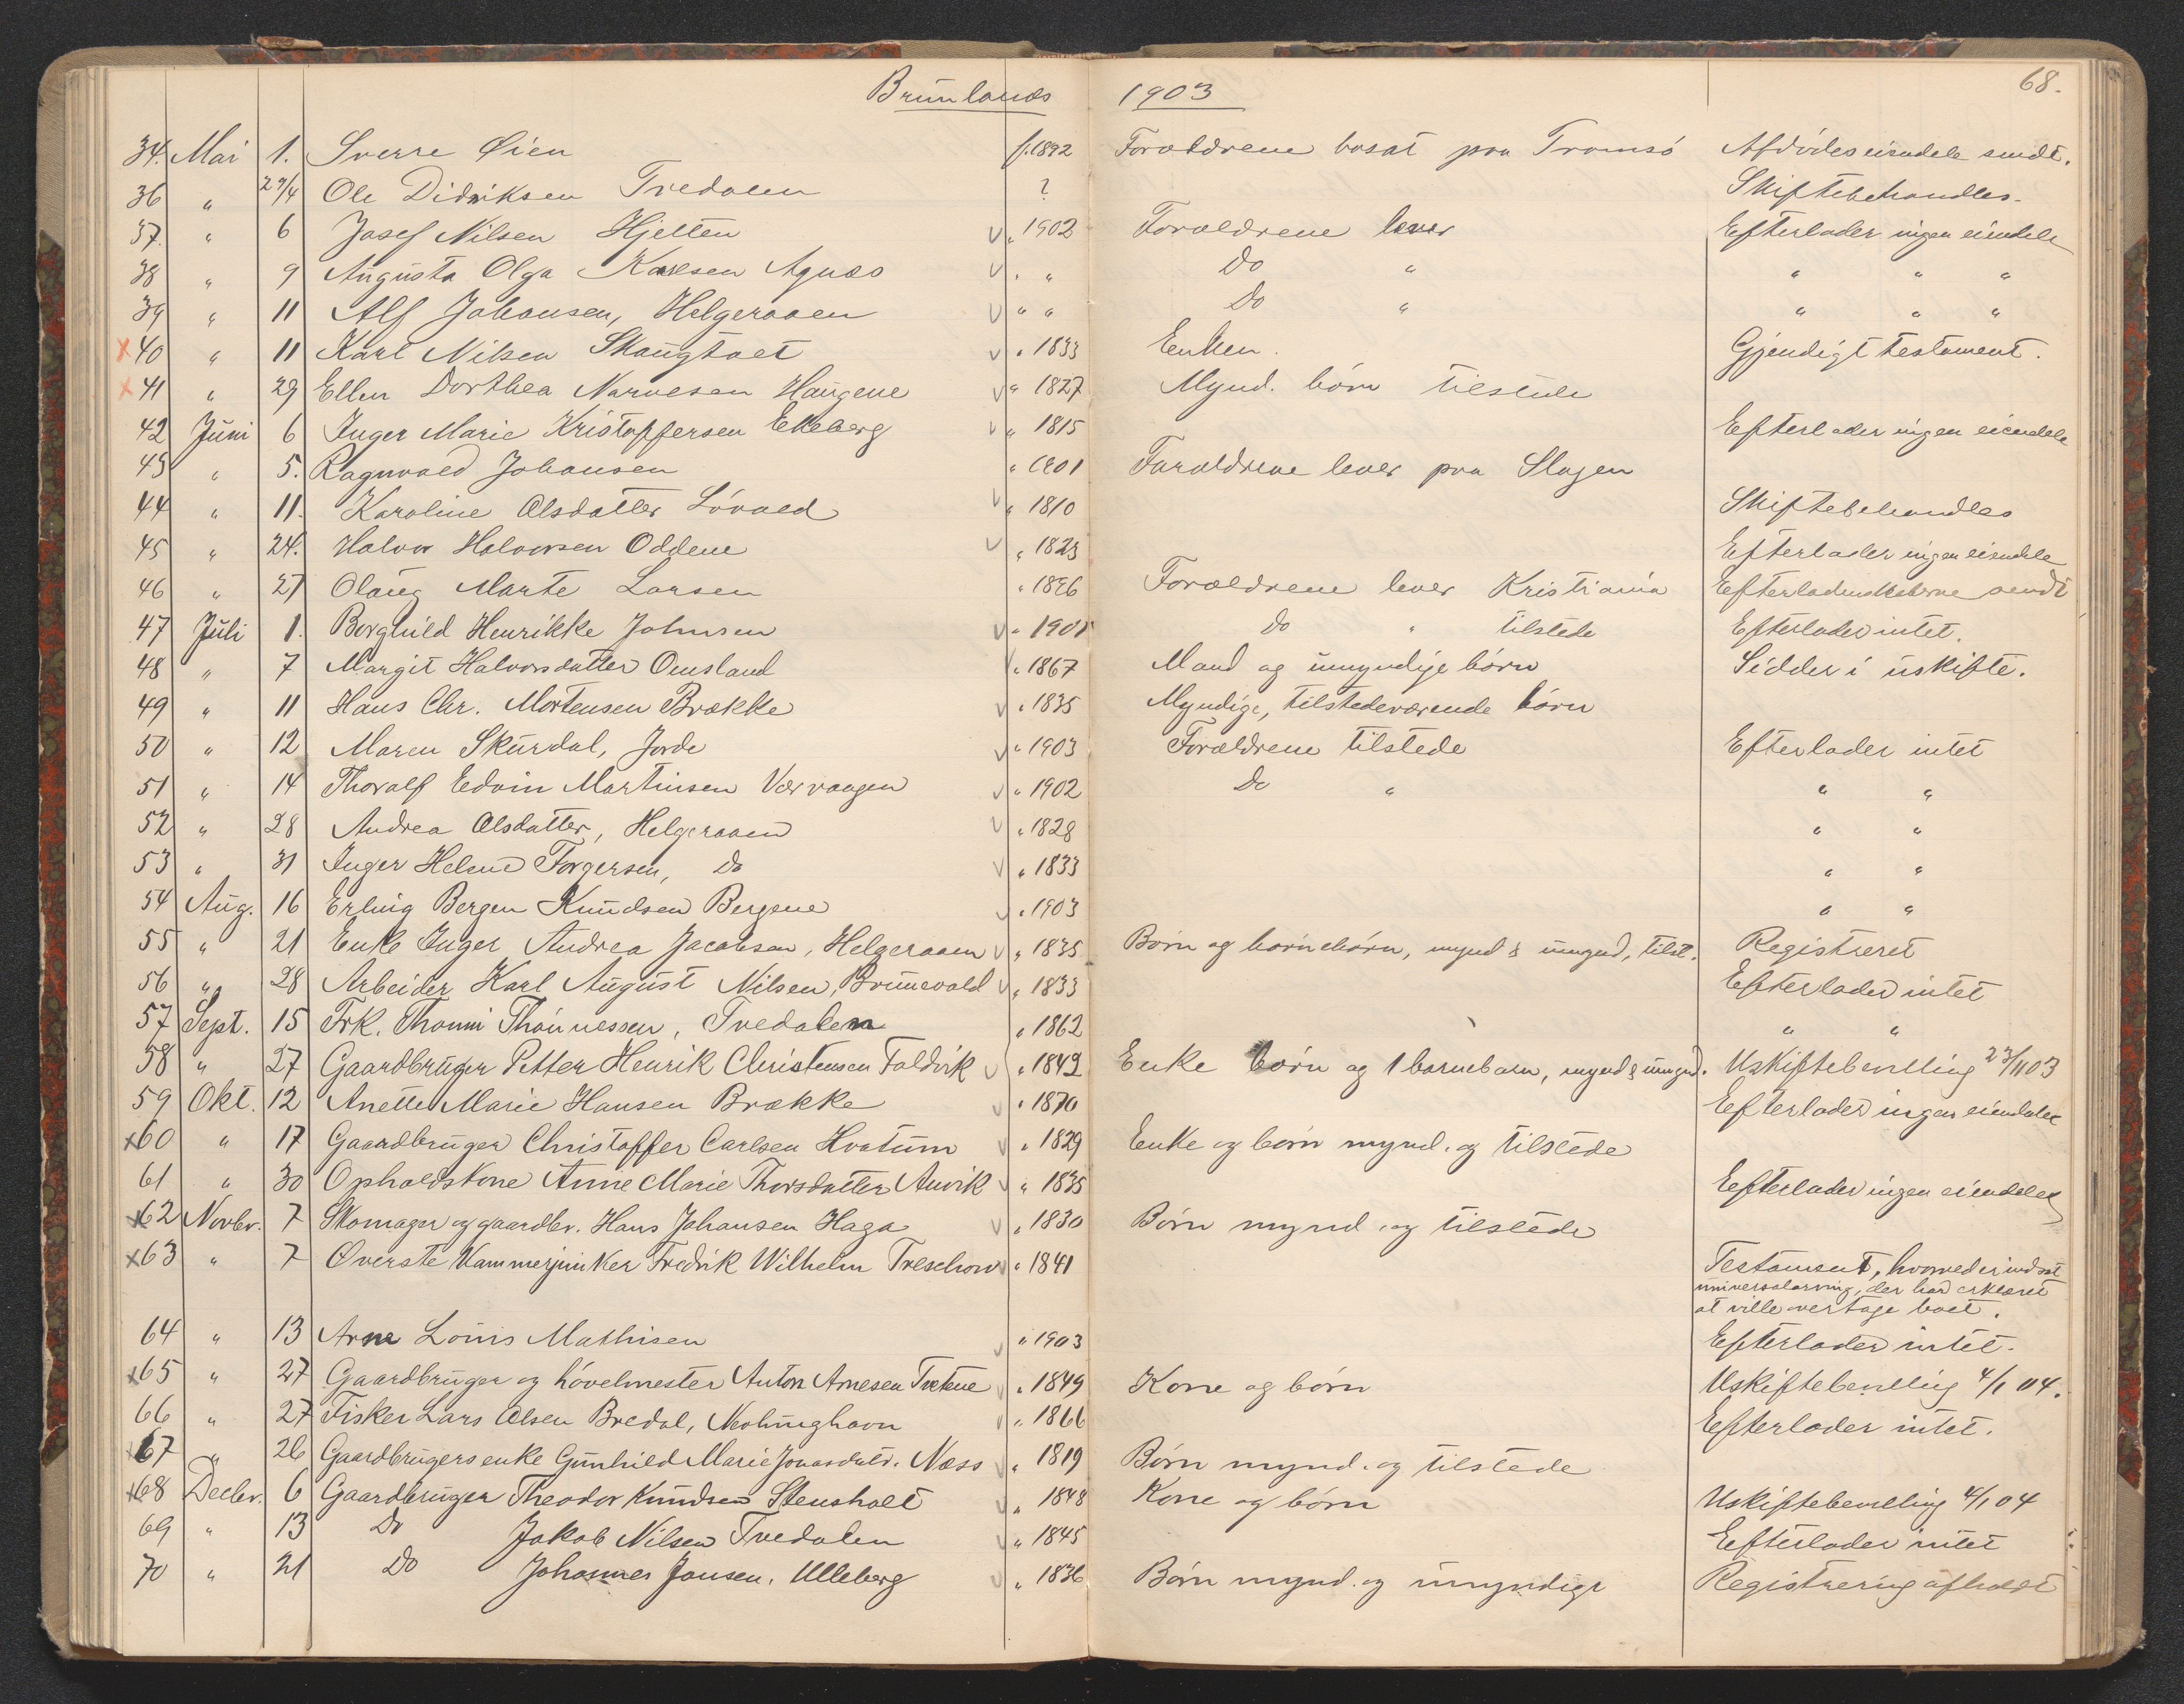 Brunlanæs 1903 68.
34. Mai 1. Sverre Øien f. 1892 Forældrene bosat paa Tromsö Afdödes eiendele sendt.
36 " 29/4 Ole Didriksen Tvedalen ? Skiftebehandles.
37. " 6 Josef Nilsen Hjelten v " 1902 Forældrene lever Efterlader ingen eiendele
38 " 9 Augusta Olga Karlsen Agnæs v " " Do " " " "
39 " 11 Alf Johansen, Helgeraaen v " " Do " " " "
x 40 " 11 Karl Nilsen Skaugtoet v " 1833 Enken. Gjendigt testament.
x 41 " 29 Ellen Dorthea Narvesen Haugene v " 1827 Mynd. börn tilstede
42 Juni 6 Inger Marie Kristoffersen Ekeberg v " 1815 Efterlader ingen eiendele
43 " 5. Ragnvald Johansen " 1901 Forældrene lever paa Slagen
44 " 11. Karoline Olsdatter Lövald v " 1810 Skiftebehandles
45 " 24. Halvor Halvorsen Oddene v " 1823 Efterlader ingen eiendele
46 " 27 Olaug Marte Larsen " 1896 Forældrene lever Kristiania Efterladenskaberne sendt
47 Juli 1. Borghild Henrikke Johnsen v " 1901 Do " tilstede Efterlader intet.
48 " 7 Margit Halvorsdatter Omsland v " 1867 Mand og umyndige börn Sidder i uskifte.
49 " 11 Hans Chr. Mortensen Brække v " 1835 Myndige, tilstedeværende börn
50 " 12 Maren Skurdal, Jorde v " 1903 Forældrene tilstede Efterlader intet
51 " 14 Thoralf Edvin Martinsen Værvaagen v " 1902 Do " " "
52 " 28 Andrea Olsdatter, Helgeraaen v " 1828 " "
53 " 31 Inger Helene Torgersen, Do v " 1833 " "
54 Aug. 16 Erling Bergen Knudsen Bergene v " 1903 " "
55 " 21 Enke Inger Andrea Jacobsen, Helgeraaen v " 1835 Börn og barnebörn, mynd & umynd, tilst. Registreret
56 " 28 Arbeider Karl August Nilsen, Brunevald v " 1833 Efterlader intet
57 Sept. 15 Frk. Thomi Thönnessen, Tvedalen " 1862 " "
58 " 27 Gaardbruger Petter Henrik Christensen Foldvik v " 1842 Enke börn og 1 barnebarn, mynd & umynd. Uskiftebevilling 23/11 03
59 Okt. 12 Anette Marie Hansen Brække v " 1870 Efterlader ingen eiendele
x60 " 17 Gaardbruger Christoffer Carlsen Hvatum v " 1829 Enke og börn mynd. og tilstede
61 " 30 Opholdskone Anne Marie Thorsdatter Anvik v " 1835 Efterlader ingen eiendele
x62 Novbr. 7 Skomager og gaardbr. Hans Johansen Haga v " 1830 Börn mynd. og tilstede
x63 " 7 Oberste Kammerjunker Fredrik Wilhelm Treschow v " 1841 Testament, hvorved er indsat
universalarving, der har erklæret
at ville overtage boet.
64 " 13 Arne Louis Mathisen v " 1903 Efterlader intet.
x65 " 27 Gaardbruger og hövelmester Anton Arnesen Tvetene v " 1849 Kone og börn Uskiftebevilling 4/1 04.
66 " 27 Fisker Lars Olsen Bredal, Nevlunghavn v " 1866 Efterlader intet.
x67 " 26 Gaardbrugers enke Gunhild Marie Jonasdatr. Næss v " 1819 Börn mynd. og tilstede
x68 Decbr. 6 Gaardbruger Theodor Knudsen Stensholt v " 1848 Kone og börn Uskiftebevilling 4/1 04
69 " 13 Do Jakob Nilsen Tvedalen v " 1845 Efterlader intet
70 " 21 Do Johannes Jansen, Ulleberg v " 1836 Börn mynd. og umyndige Registrering afholdt